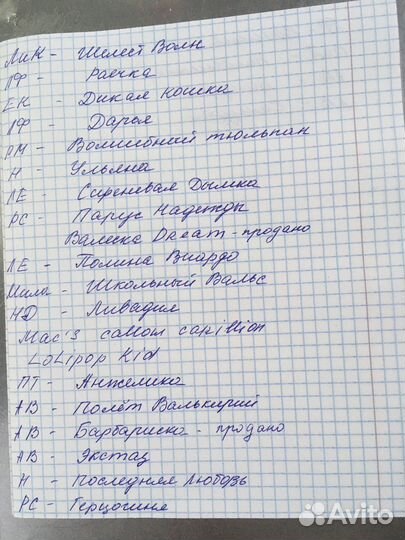 ЛиК - Шелест Волн
ЛФ - Раечка
ЕК - Дикая кошка
ЛФ - Дарья
РМ - Волшебный тюльпан
Н - Ульяна
ЛЕ - Сиреневая Дымка
РС - Парус Надежды
Валеска Dream - продано
ЛЕ - Полина Виардо
Мила - Школьный Вальс
НД - Ливадия
Mac's carillion
LoLipop Kid
ПТ - Анжелика
АВ - Полёт Валькирий
АВ - Барбариска - продано
АВ - Экстаз
Н - Последняя Любовь
РС - Герцогиня
Avito